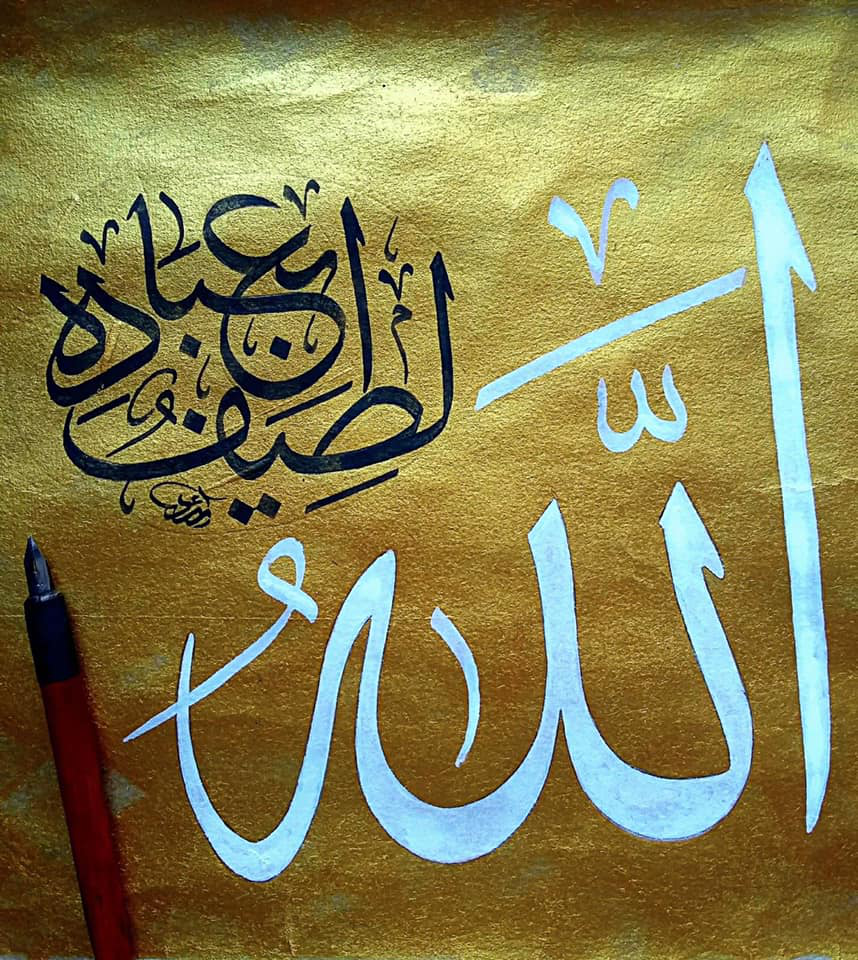 اللَّهُ
لَطِيفٌ بِعِبَادِهِ